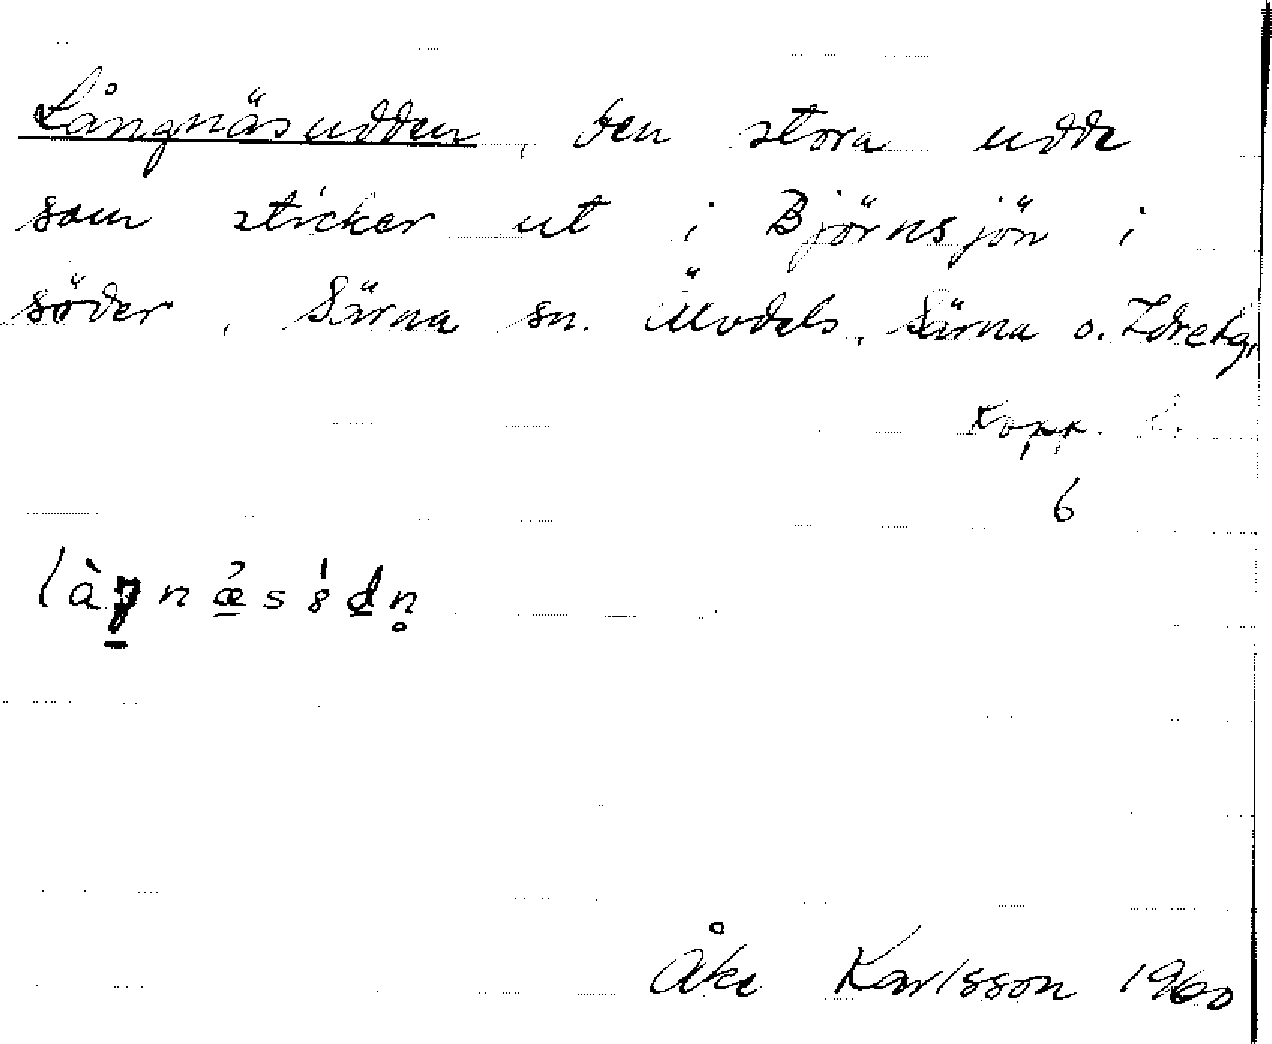 Långnäsudden, den stora udde
som sticker ut i Björnsjön i
söder, Särna sn. Älvdals, Särna o. Idre tg,
Kopp. l.
6
Åke Karlsson 1960